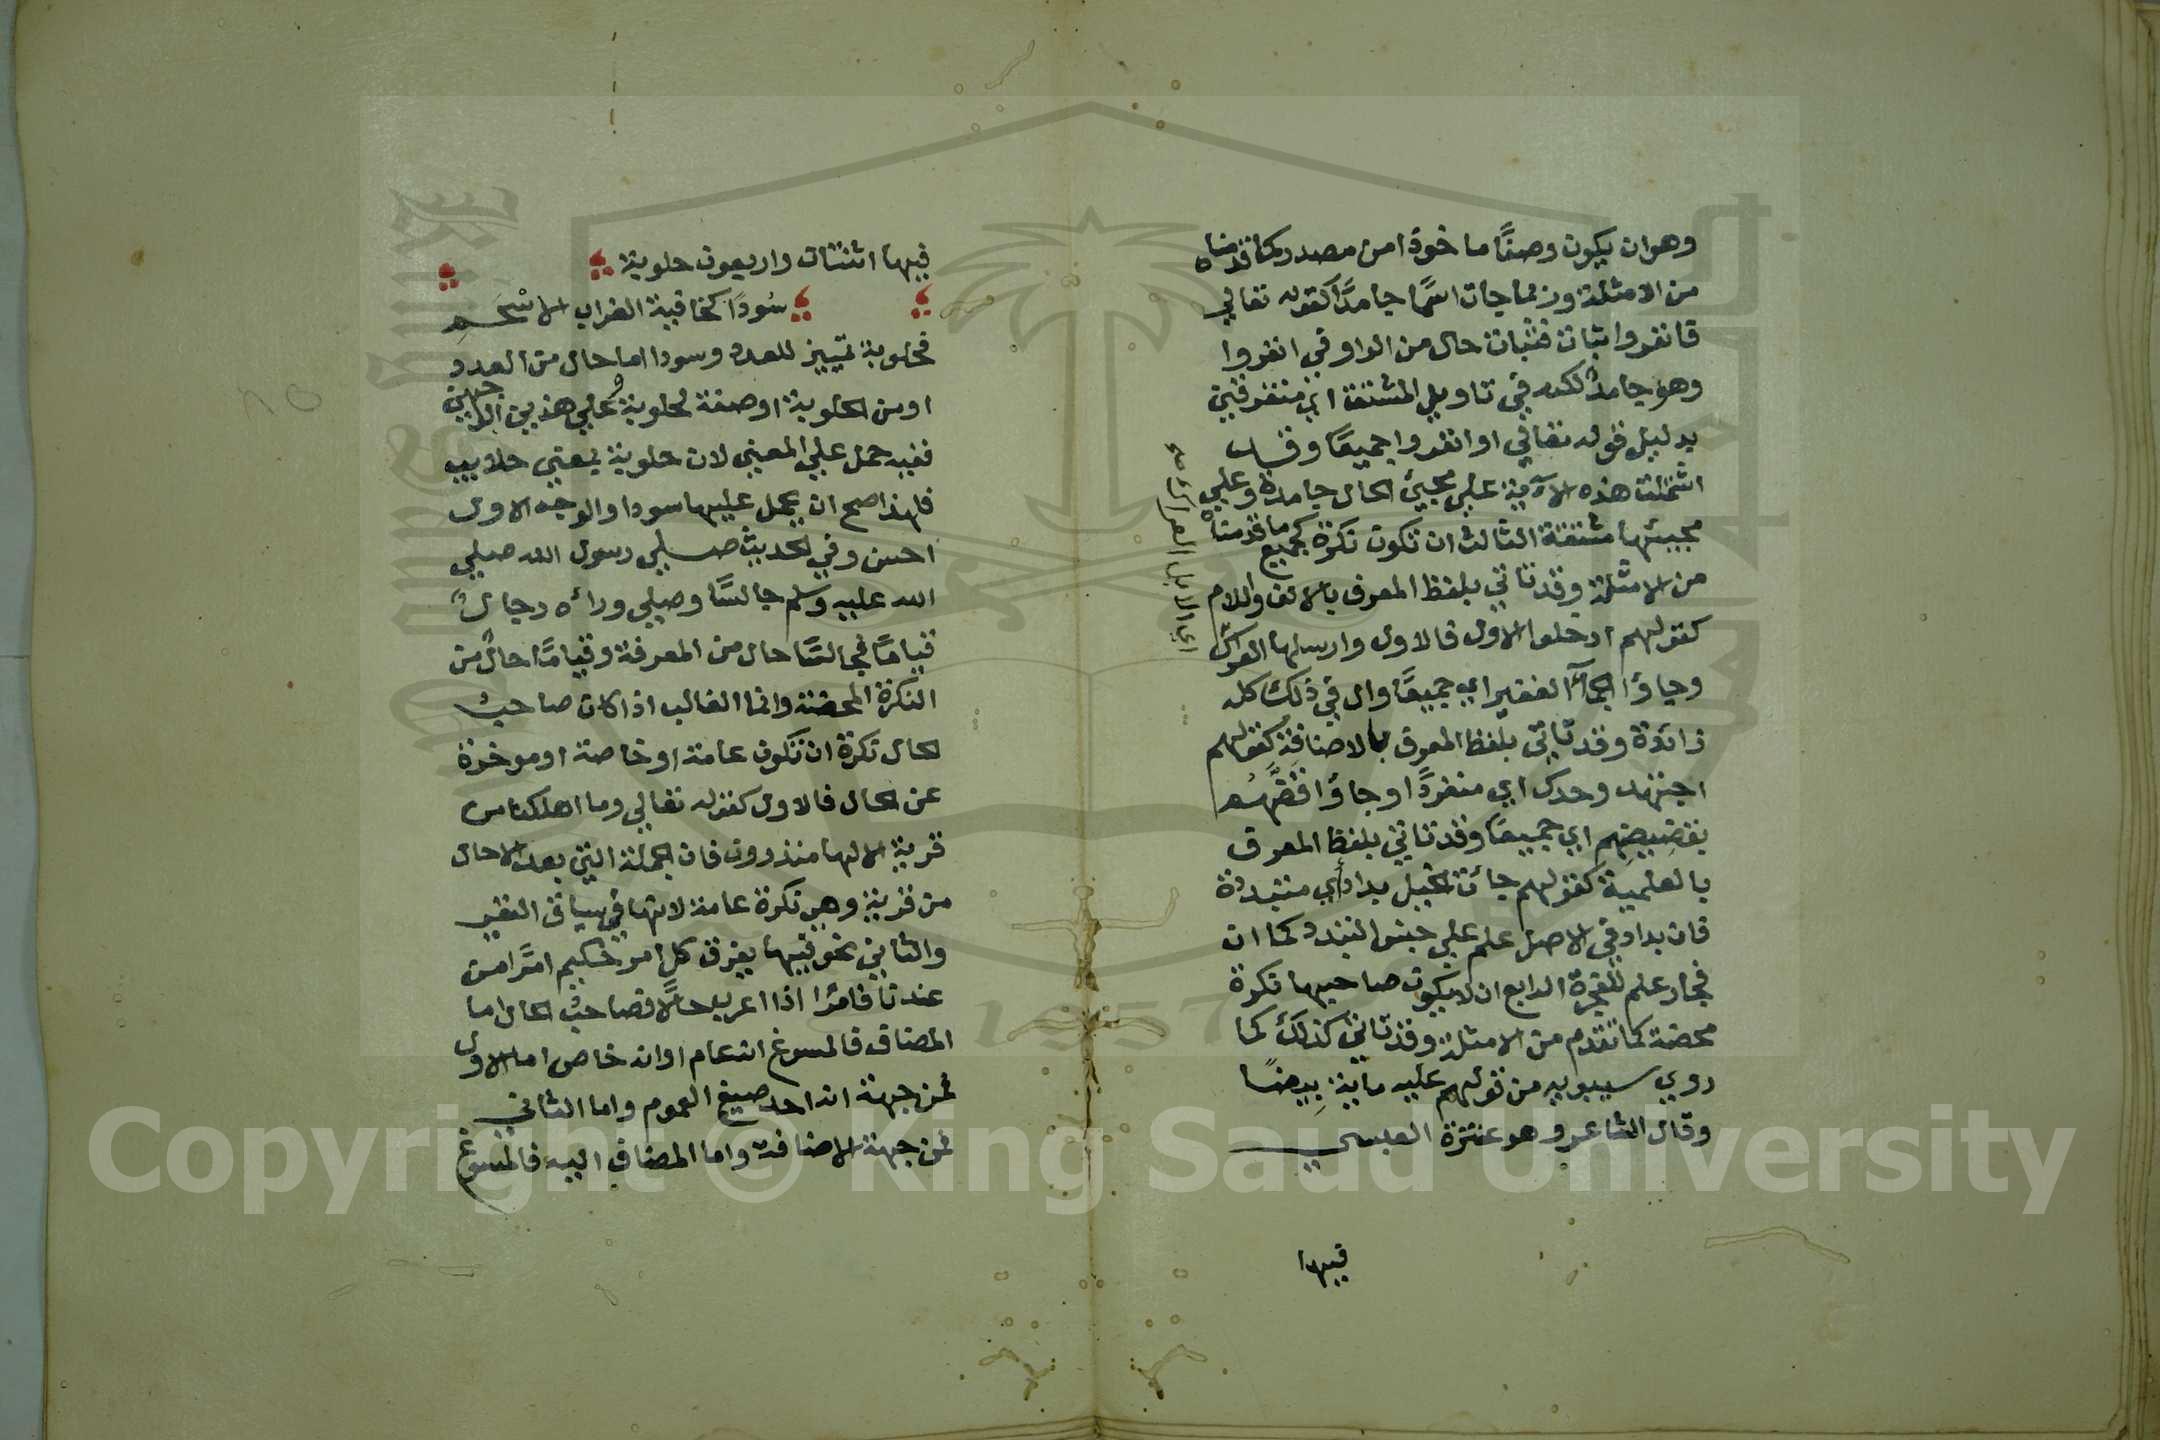 وهو ان يكون وصفًا ماخوذا من مصدر كما قدمناه
من الامثلة وربما جات اسمًا جامدًا كقوله تعالي
فانفروا ثبات فثبات حال من الواو في انفروا
وهو جامد لكنه في تاويل المشتق اي متفرقين
بدليل قوله تعالي او انفروا جميعًا وقد
اشتملت هذه الآية علي مجيئ الحال جامدة وعلي
مجيئها مشتقة الثالث ان تكون نكرة كجميع ما قدمناه
من الامثلة وقد تاتي بلفظ المعرف بالالف واللام
كقولهم ادخلوا الاول فالاول وارسلها العراك
وجاؤا الجمآ الغفير اي جميعًا وال في ذلك كله
زائدة وقد تاتي بلفظ المعرف بالاضافة كقولهم
اجتهد وحدك اي منفردًا وجاؤا قضَّهُم
بقضيضهم اي جميعًا وقد تاتي بلفظ المعرف
بالعلمية كقولهم جائت الخيل بداد اي متبددة
فان بداد في الاصل علم علي جنس التبدد كما ان
فجار علم للفجرة الرابع ان لا يكون صاحبها نكرة
محضة كما تقدم من الامثلة وقد تاتي كذلك كما
روي سيبويه من قولهم عليه ماية بيضًا
وقال الشاعر وهو عنترة العبسي
فيها
اي الابل العراك
فيها اثنتان واربعون حلوبة
سُودًا كخافية الغراب الاسْحَمِ
فحلوبة تمييز للعدد وسودا اما حال من العدد
او من الحلوبة او صفة لحلوبة وعلي هذين الوجهين
ففيه حمل علي المعني لان حلوبة بمعني حلايب
فلهذا صح ان يحمل عليها سودا والوجه الاول
احسن وفي الحديث صلي رسول الله صلي
الله عليه وسلم جالسًا وصلي وراءه رجالٌ
قيامًا فجالسًا حال من المعرفة وقيامًا حال من
النكرة المحضة وانما الغالب اذا كان صاحب
الحال نكرة ان تكون عامة او خاصة او موخرة
عن الحال فالاول كقوله تعالي وما اهلكنا من
قرية الا لها منذرون فان الجملة التي بعد الا حال
من قرية وهي نكرة عامة لانها في سياق النفي
والثاني نحو فيها يفرق كل امر حكيم امرًا من
عندنا فامرًا اذا اعرب حالًا فصاحب الحال اما
المضاف فالمسوغ انه عام او انه خاص اما الاول
فمن جهة انه احد صيغ العموم واما الثاني
فمن جهة الاضافة واما المضاف اليه فالمسوغ
Copyright © King Saud University
1957